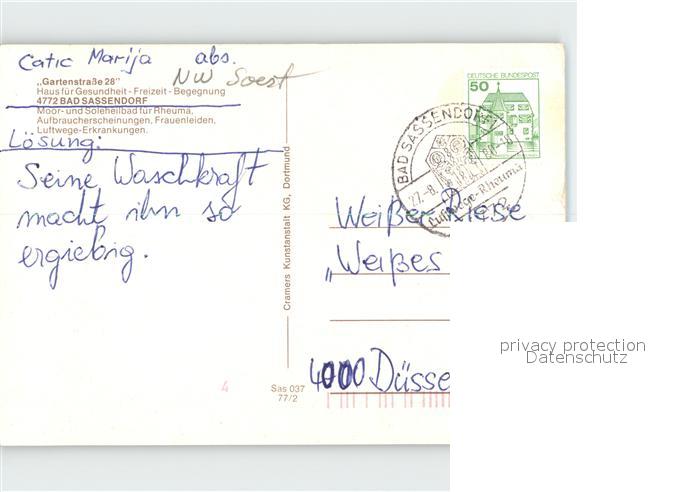 Catic Marija abs.
NW Soest
„Gartenstraße 28"
Haus für Gesundheit - Freizeit - Begegnung
4772 BAD SASSENDORF
Moor- und Soleheilbad für Rheuma,
Aufbraucherscheinungen, Frauenleiden,
Luftwege-Erkrankungen.
Lösung:
Seine Waschkraft
macht ihn so
ergiebig.
Cramers Kunstanstalt KG, Dortmund
4
Sas 037
77/2
DEUTSCHE BUNDESPOST
50
BAD SASSENDORF
Luftwege-Rheuma
Weißer Riese
„Weißes
4000 Düsse
privacy protection
Datenschutz